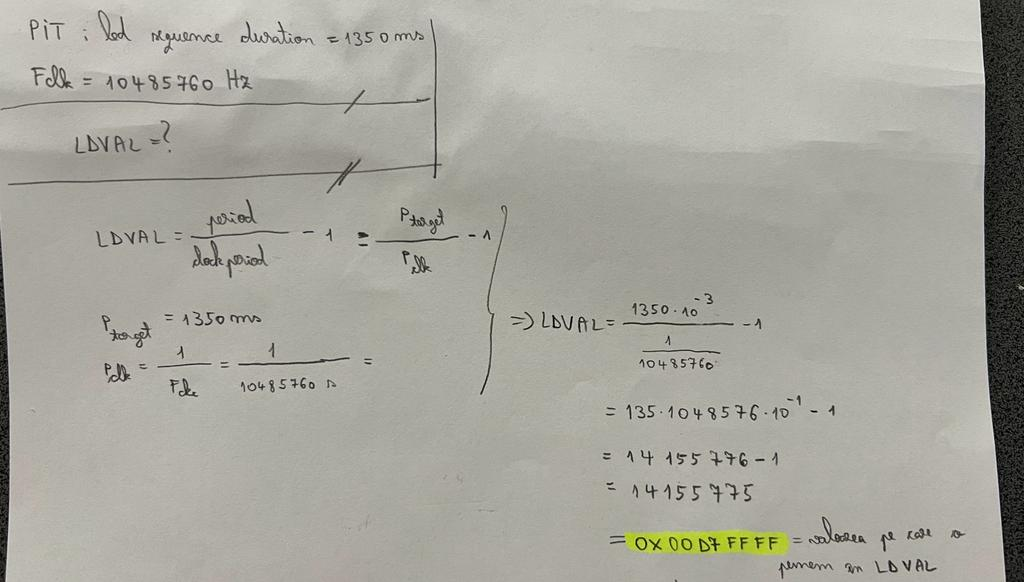 PiT : led sequence duration = 1350 ms
Fclk = 10485760 Hz
LDVAL = ?
LDVAL = period / clock period - 1 = Ptarget / Pclk - 1
Ptarget = 1350 ms
Pclk = 1 / Fclk = 1 / 10485760 s =
=> LDVAL = 1350·10^-3 / (1 / 10485760) - 1
= 135·1048576·10^-1 - 1
= 14 155 776 - 1
= 14155775
= 0X00D7FFFF = valoarea pe care o
punem în LDVAL